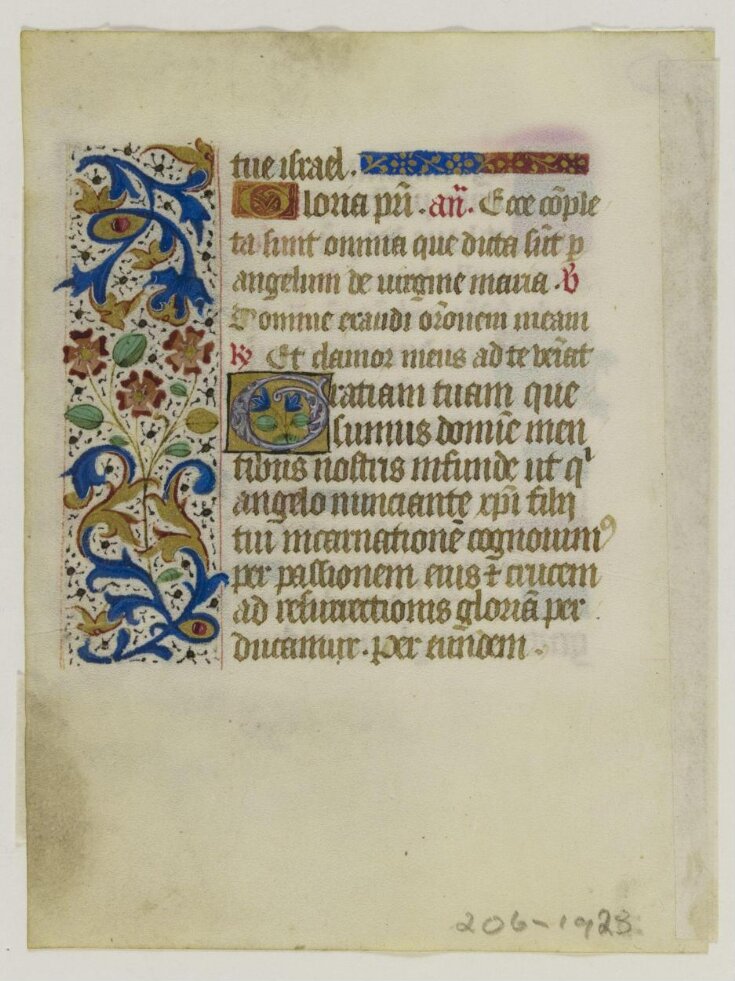 tue israel.
Gloria pr̄i. an̄. Ecce cōple
ta sunt omnia que dicta sūt p
angelum de uirgine maria. v̄
Domine exaudi or̄onem meam
R̄ Et clamor meus ad te veīat
Gratiam tuam que
sumus domīe men
tibus nostris infunde ut qⁱ
angelo nunciante xp̄i filij
tui incarnationē cognouimꝰ
per passionem eius ⁊ crucem
ad resurrectionis gloriā per
ducamur. Per eūndem.
206-1923